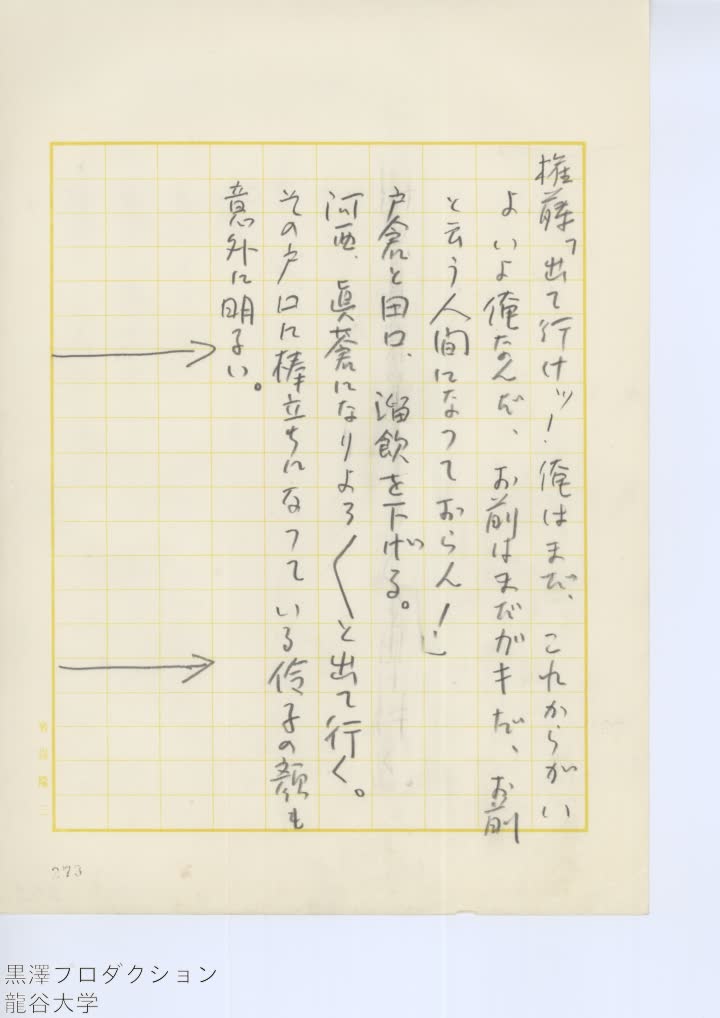 権藤「出て行けッ！俺はまだ、これからがい
よいよ俺なんだ、お前はまだガキだ、お前
と云う人間になつておらん！」
戸倉と田口、溜飲を下げる。
河西、眞蒼になりよろ〱と出て行く。
その戸口に棒立ちになつている伶子の顔も
意外に明るい。
273
黒澤プロダクション
龍谷大学